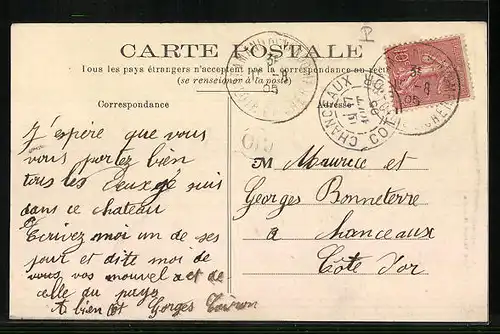 CARTE POSTALE
Tous les pays étrangers n'acceptent pas la correspondance au recto
(se renseigner à la poste)
Correspondance
Adresse
J'espère que vous
vous portez bien
tous les deux je suis
dans ce chateau
Ecrivez moi un de ses
jour et dite moi de
vous, vos nouvel et de
celle du pays
A bien tot Gorges
M Maurice et
Georges Bonneterre
a Chanceaux
Côte d'or
CHANCEAUX
COTE D'OR
10